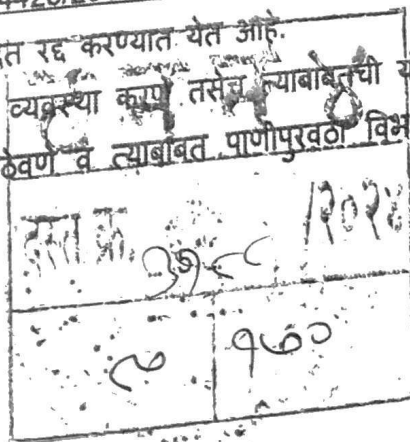 त रद्द करण्यात येत आहे.
व्यवस्था करणे तसेच त्याबाबतची
ठेवणे व त्याबाबत पाणीपुरवठा विभ
दस्त क्र. /२०२४
१७०